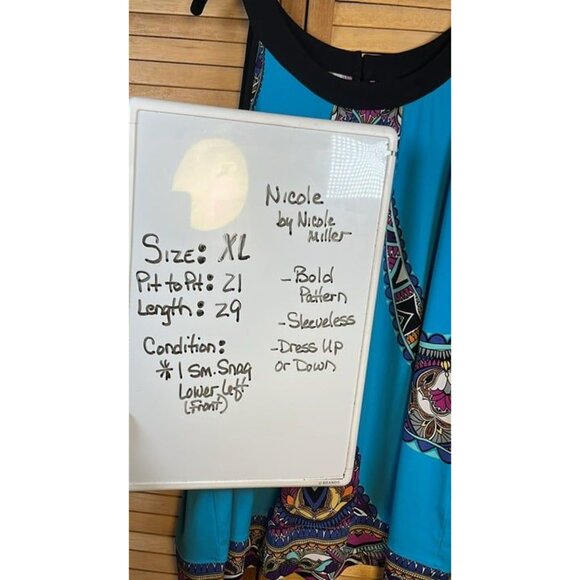 Nicole
by Nicole
Miller
Size: XL
Pit to Pit: 21
Length: 29
Condition:
* 1 Sm. Snag
Lower Left
(Front)
- Bold
Pattern
- Sleeveless
- Dress Up
or Down
U BRANDS